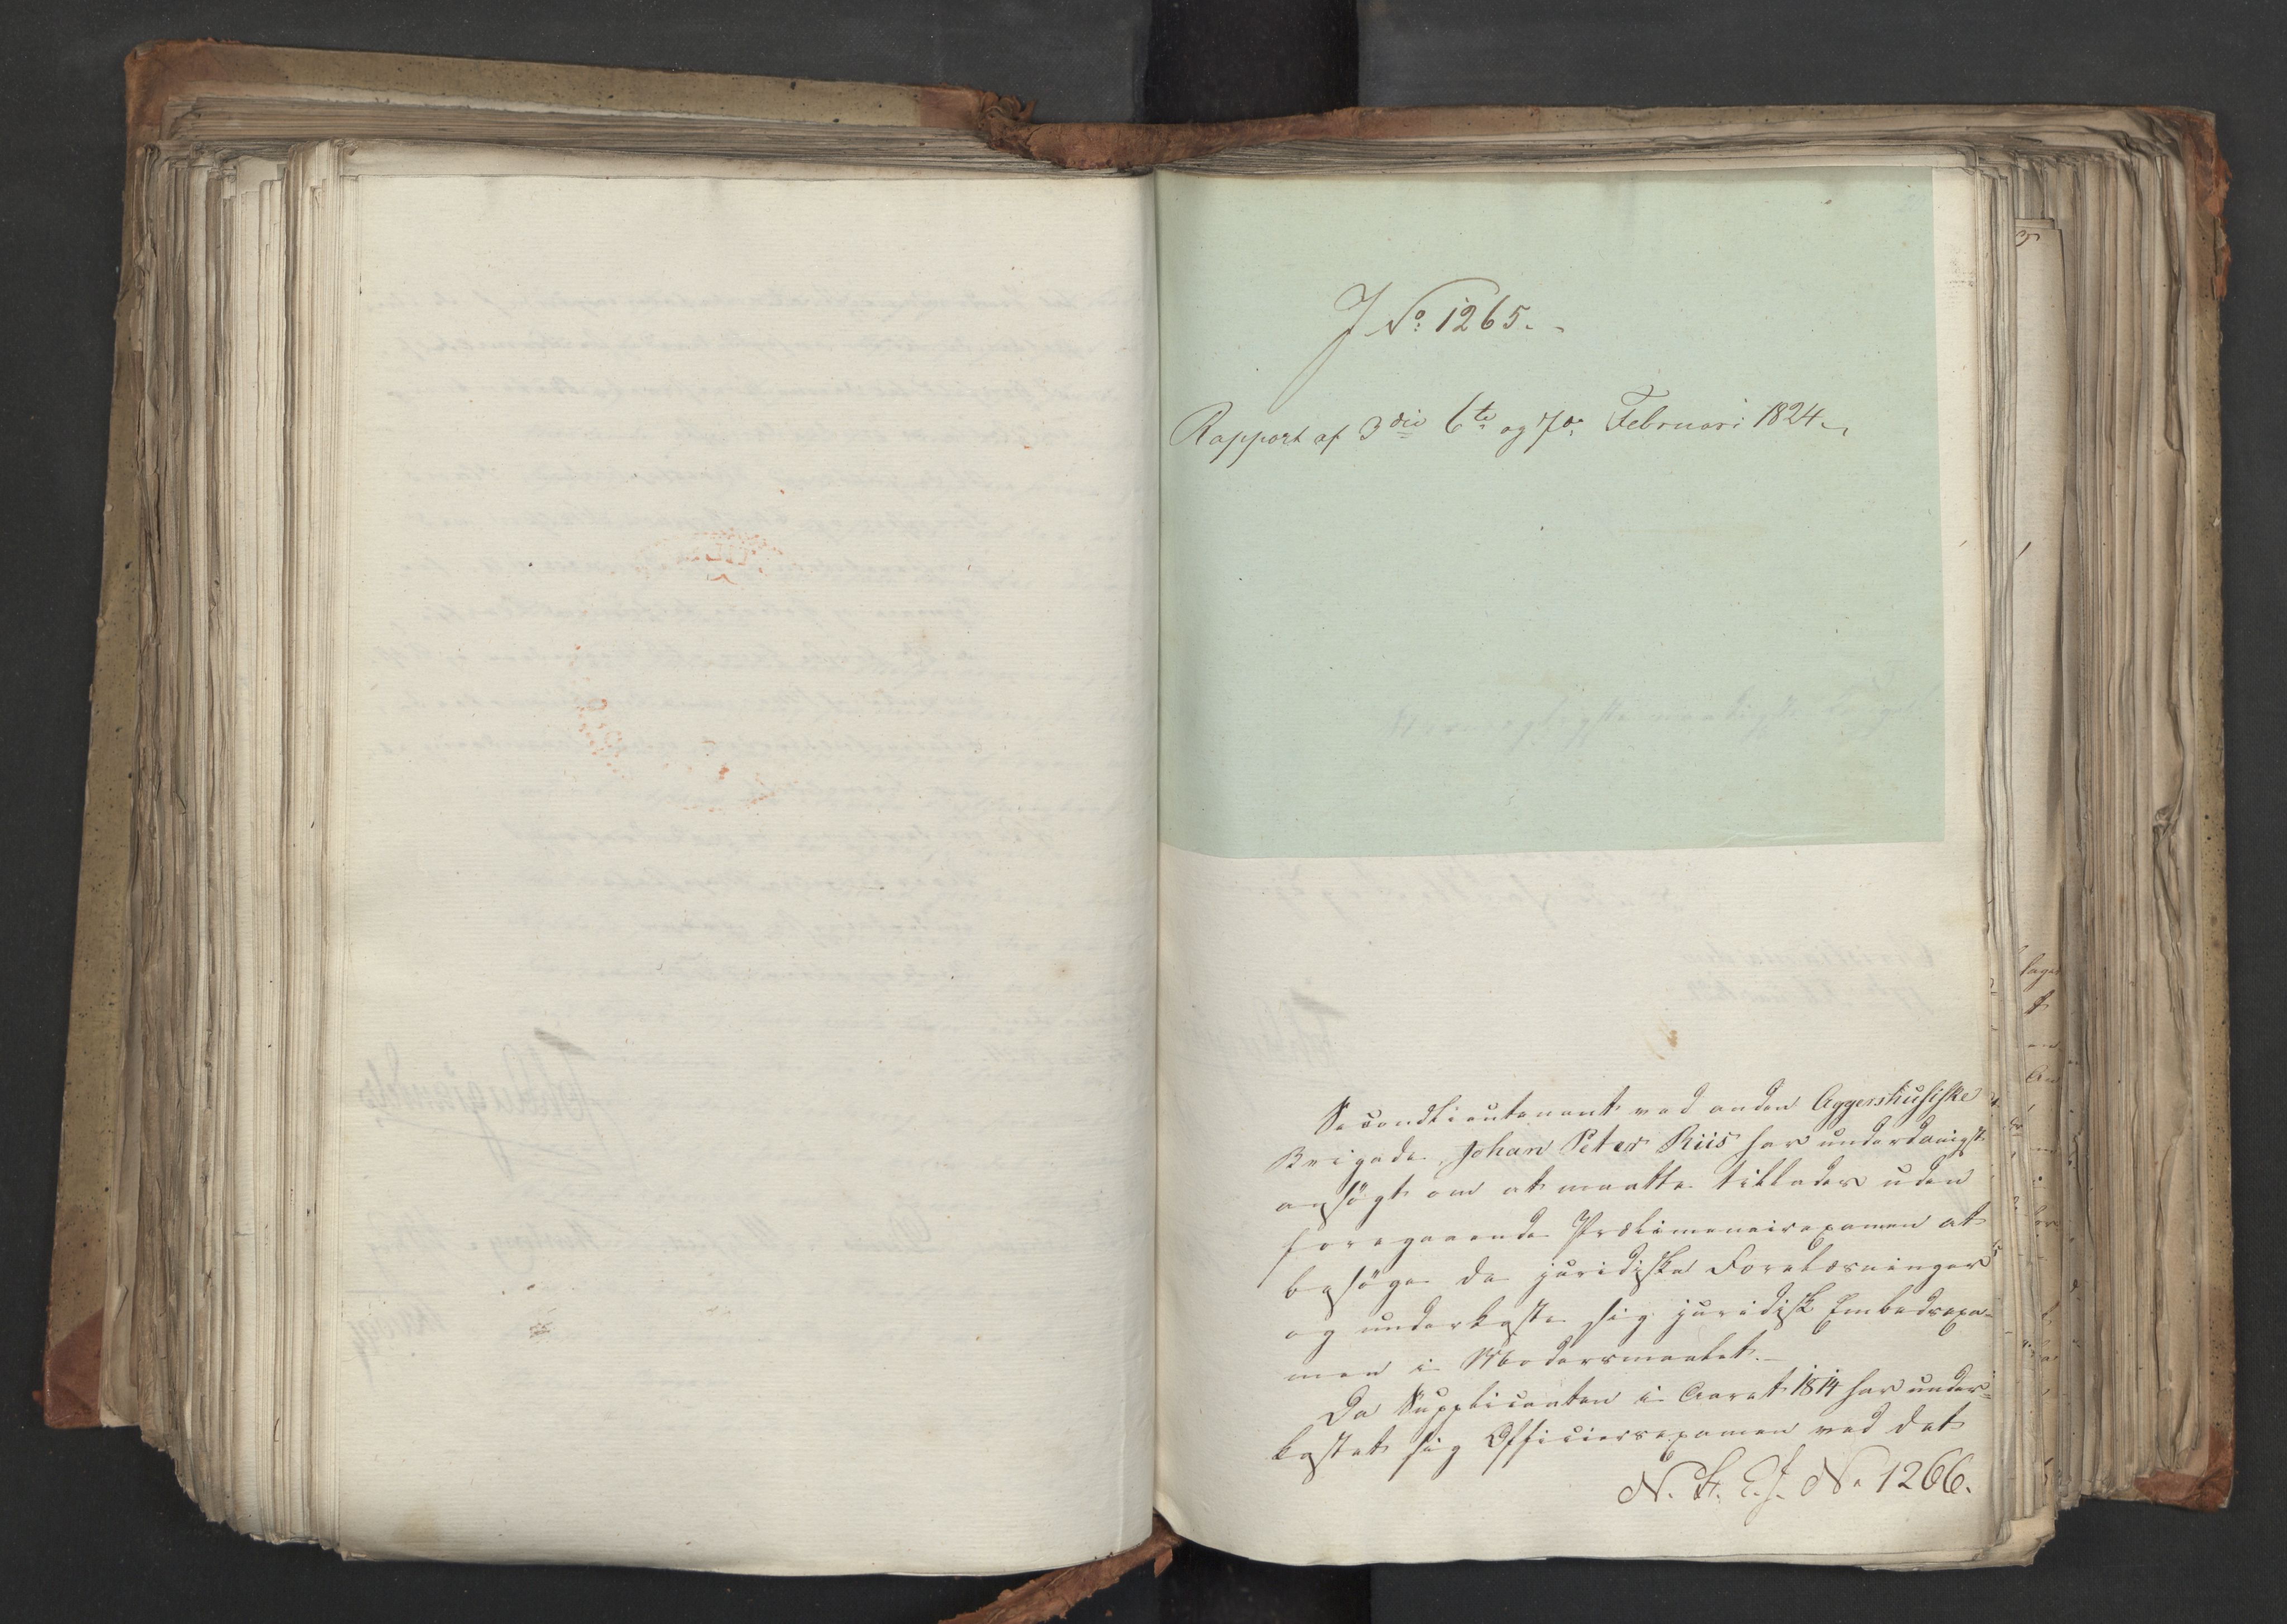 J No: 1265.
Rapport af 3die 6te og 7de Februari 1824.
Secondlieutenant ved anden Aggershusiske
Brigade, Johan Peter Riis har underdanigst
ansögt om at maatte tillades uden
foregaaende Prælimenairexamen at
besöge de juridiske Forelæsninger
og underkaste sig juridisk Embedsexa-
men i Modersmaalet.
Da Supplicanten i Aaret 1814 har under-
kastet sig Officiersexamen ved det
N. St. E. J. No 1266.